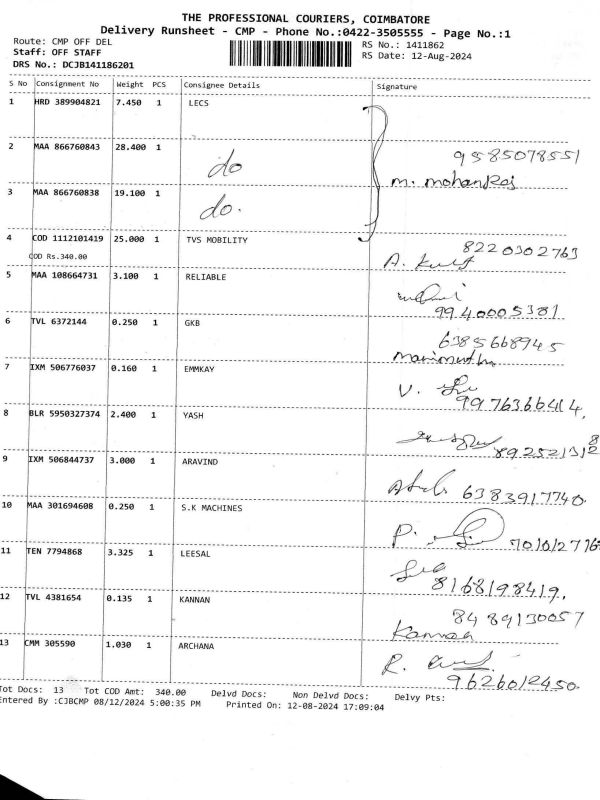 THE PROFESSIONAL COURIERS, COIMBATORE
Delivery Runsheet - CMP - Phone No.:0422-3505555 - Page No.:1
Route: CMP OFF DEL
RS No.: 1411862
Staff: OFF STAFF
RS Date: 12-Aug-2024
DRS No.: DCJB141186201
S No Consignment No Weight PCS Consignee Details Signature
1 HRD 389904821 7.450 1 LECS
2 MAA 866760843 28.400 1 do 9585078551
M. Mohanraj
3 MAA 866760838 19.100 1 do.
4 COD 1112101419 25.000 1 TVS MOBILITY 8220302763
COD Rs.340.00 A.
5 MAA 108664731 3.100 1 RELIABLE
9940005381
6 TVL 6372144 0.250 1 GKB 6385668945
Marimuthu
7 IXM 506776037 0.160 1 EMMKAY V.
9976366414,
8 BLR 5950327374 2.400 1 YASH
9 IXM 506844737 3.000 1 ARAVIND
6383917740.
10 MAA 301694608 0.250 1 S.K MACHINES
P.
11 TEN 7794868 3.325 1 LEESAL
8168198419,
12 TVL 4381654 0.135 1 KANNAN 8489130057
Kannan
13 CMM 305590 1.030 1 ARCHANA
R.
9626012450.
Tot Docs: 13 Tot COD Amt: 340.00 Delvd Docs: Non Delvd Docs: Delvy Pts:
Entered By :CJBCMP 08/12/2024 5:00:35 PM Printed On: 12-08-2024 17:09:04